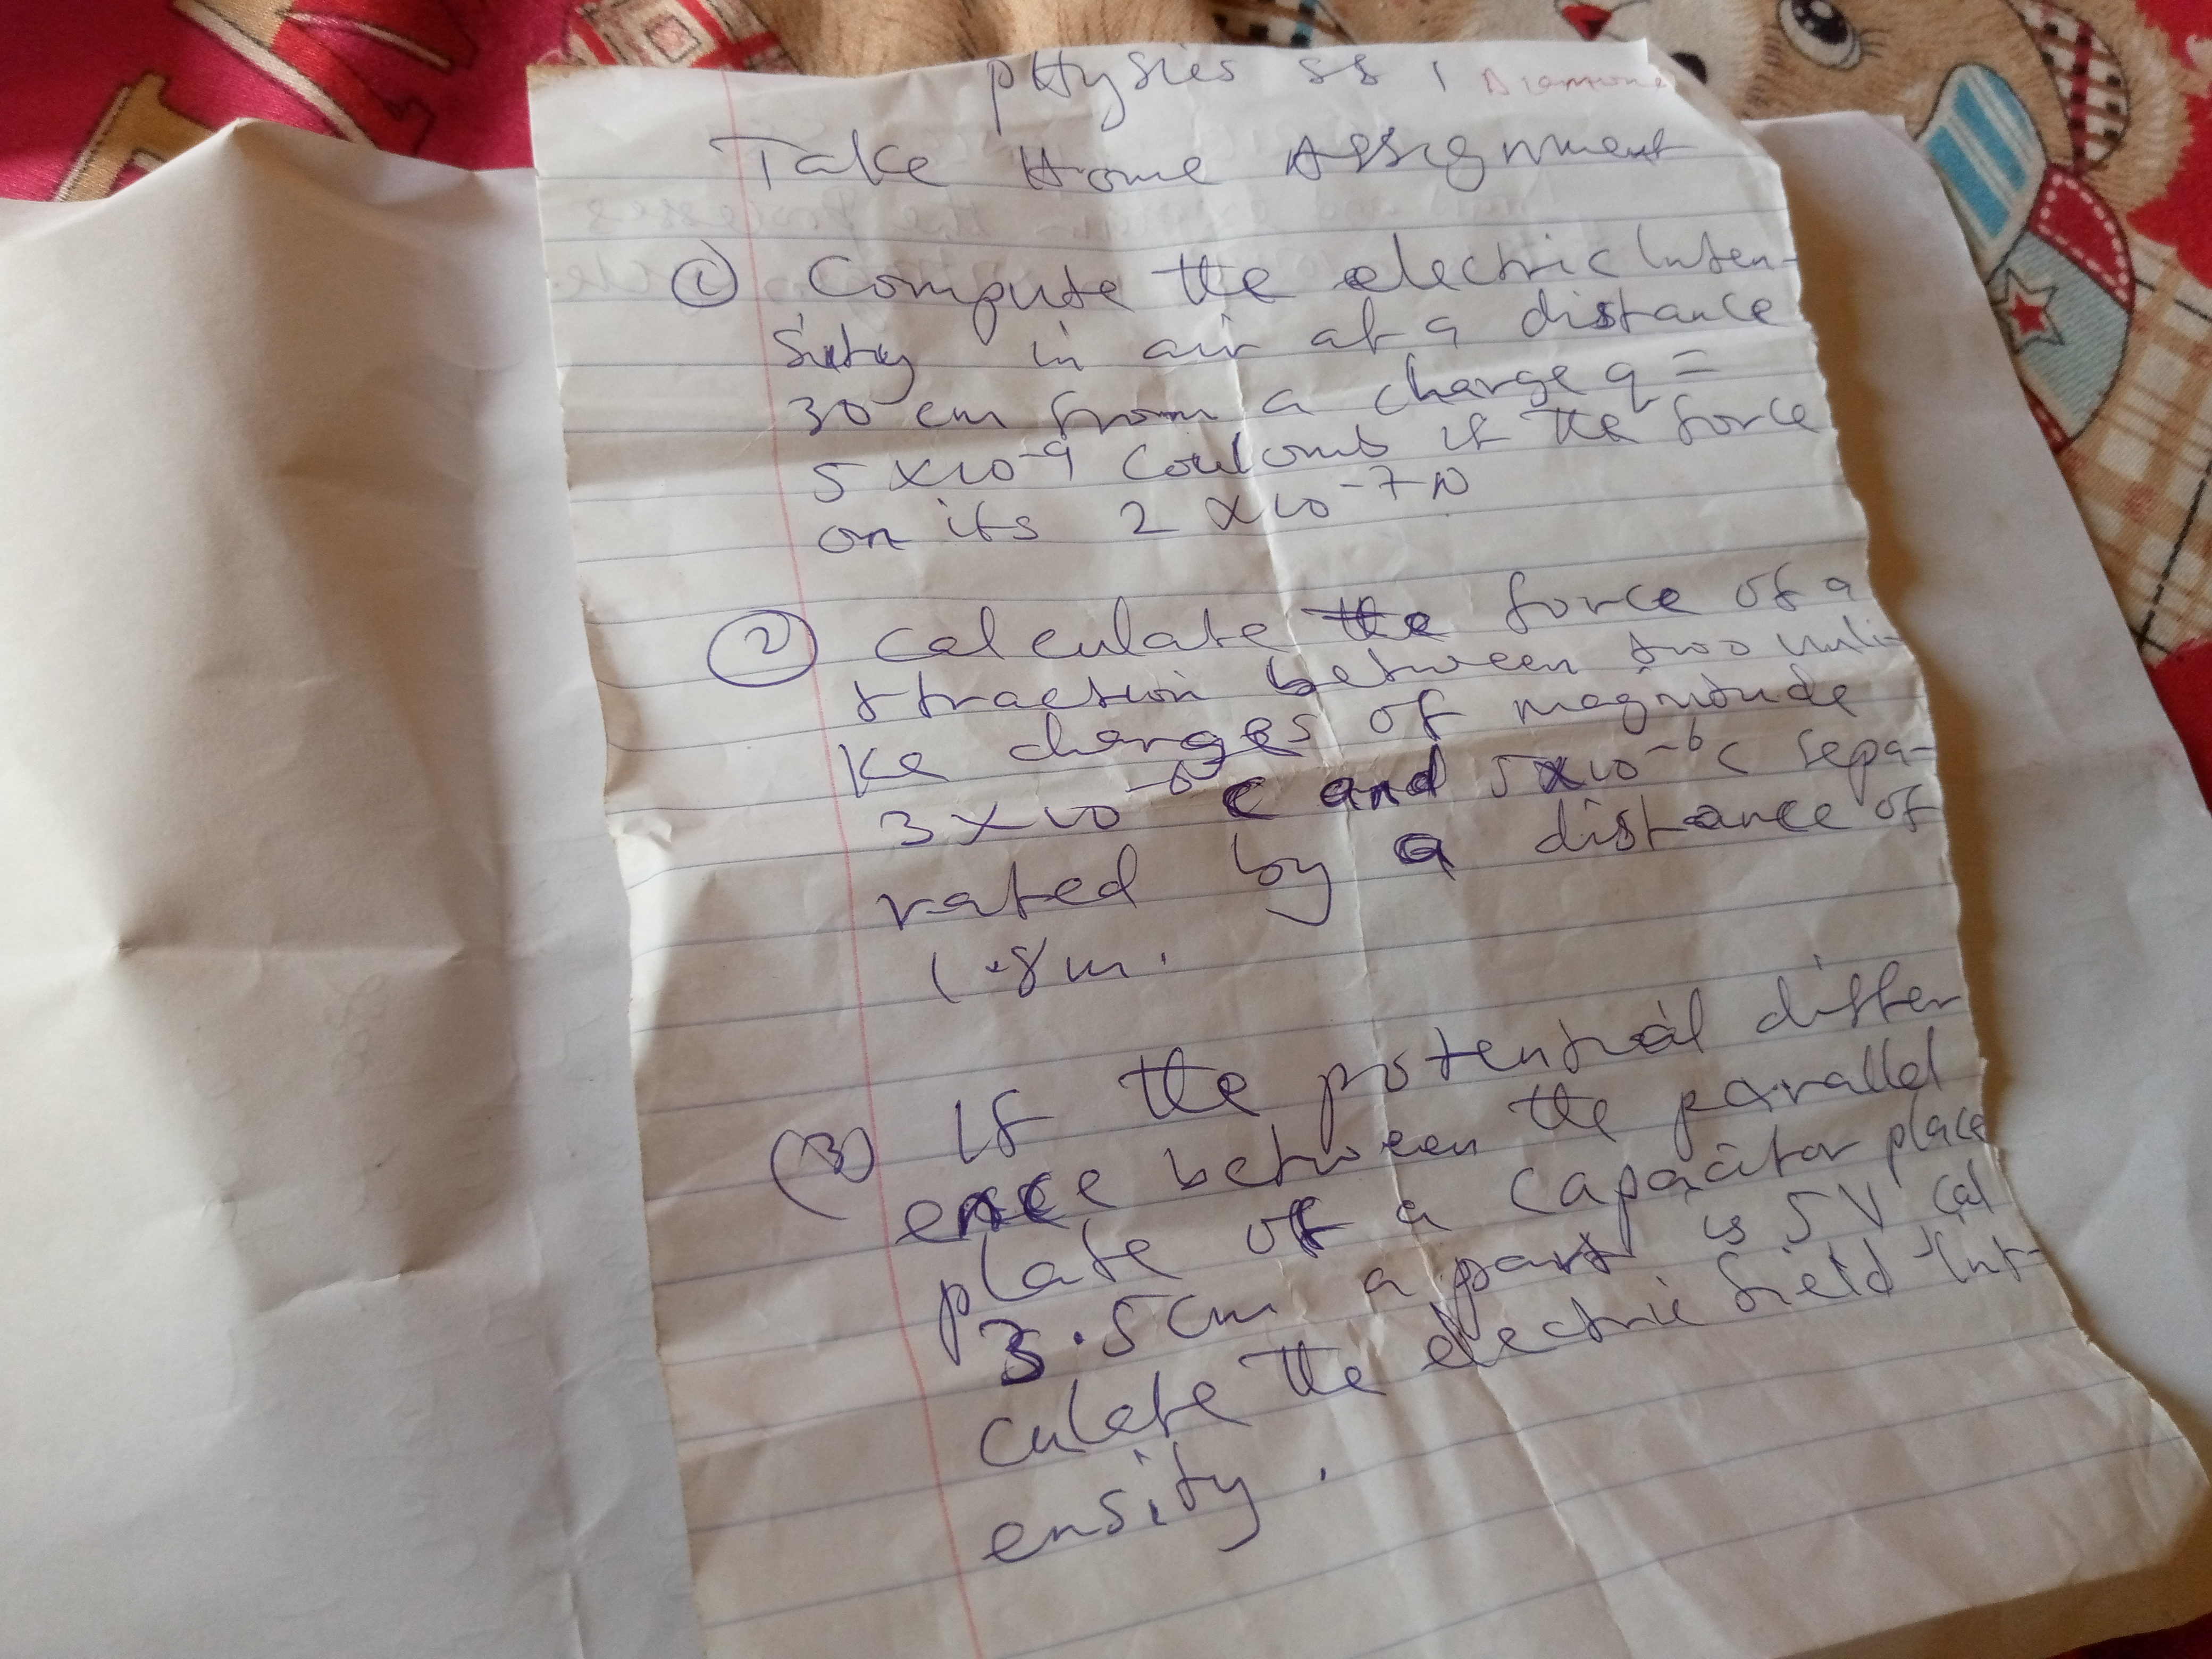 pHysics SS 1 Diamond
Take Home Assignment
① Compute the electric Inten-
sity in air at a distance
30 cm from a charge q =
5 x 10⁻⁹ Coulomb if the force
on its 2 x 10⁻⁷ N
② Calculate the force of a
ttraction between two unli-
ke charges of magnitude
3 x 10⁻⁶ C and 5 x 10⁻⁶ C sepa-
rated by a distance of
1.8m.
(3) If the potential differ
ence between the parallel
plate of a capacitor place
3.5cm a part is 5V cal
culate the electric field int-
ensity.